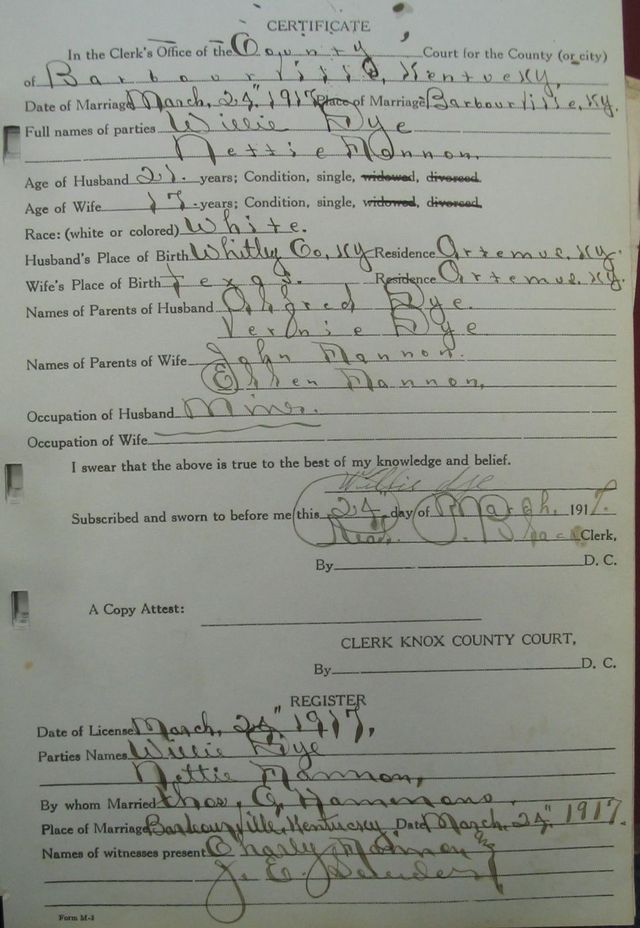 CERTIFICATE
In the Clerk's Office of the County Court for the County (or city)
of Barbourville, Kentucky,
Date of Marriage March, 24" 1917 Place of Marriage Barbourville, Ky.
Full names of parties Willie Dye
Nettie Mannon.
Age of Husband 21. years; Condition, single, widowed, divorced
Age of Wife 17. years; Condition, single, widowed, divorced
Race: (white or colored) White.
Husband's Place of Birth Whitley Co, Ky Residence Artemus, Ky.
Wife's Place of Birth Texas. Residence Artemus, Ky.
Names of Parents of Husband Dye.
Dye
Names of Parents of Wife John Mannon.
Ellen Mannon,
Occupation of Husband Miner.
Occupation of Wife
I swear that the above is true to the best of my knowledge and belief.
Willie Dye
Subscribed and sworn to before me this 24" day of March, 1917.
Read P. Black Clerk,
By D. C.
A Copy Attest:
CLERK KNOX COUNTY COURT,
By D. C.
REGISTER
Date of License March, 24" 1917,
Parties Names Willie Dye
Nettie Mannon,
By whom Married Thos, G, Hammons.
Place of Marriage Barbourville, Kentucky Date March, 24" 1917.
Names of witnesses present Charly Mannon &
J. E. Saunders
Form M-1